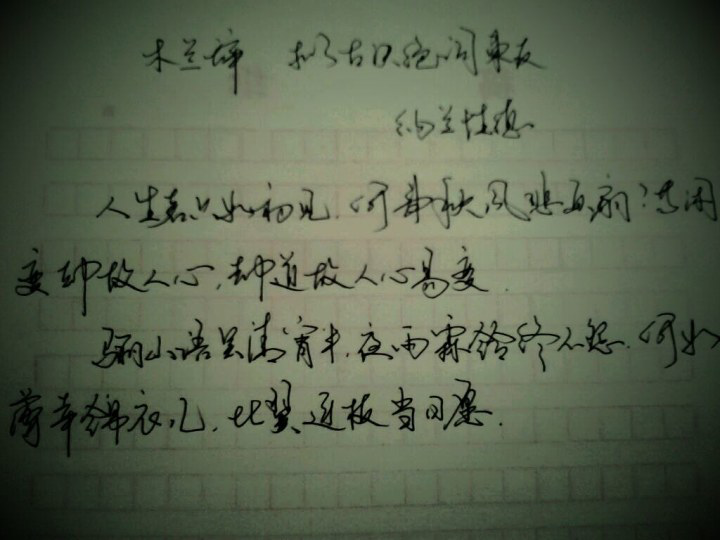 木兰辞 拟古决绝词柬友
纳兰性德
人生若只如初见,何事秋风悲画扇?等闲
变却故人心,却道故人心易变.
骊山语罢清宵半,夜雨霖铃终不怨.何如
薄幸锦衣儿,比翼连枝当日愿.